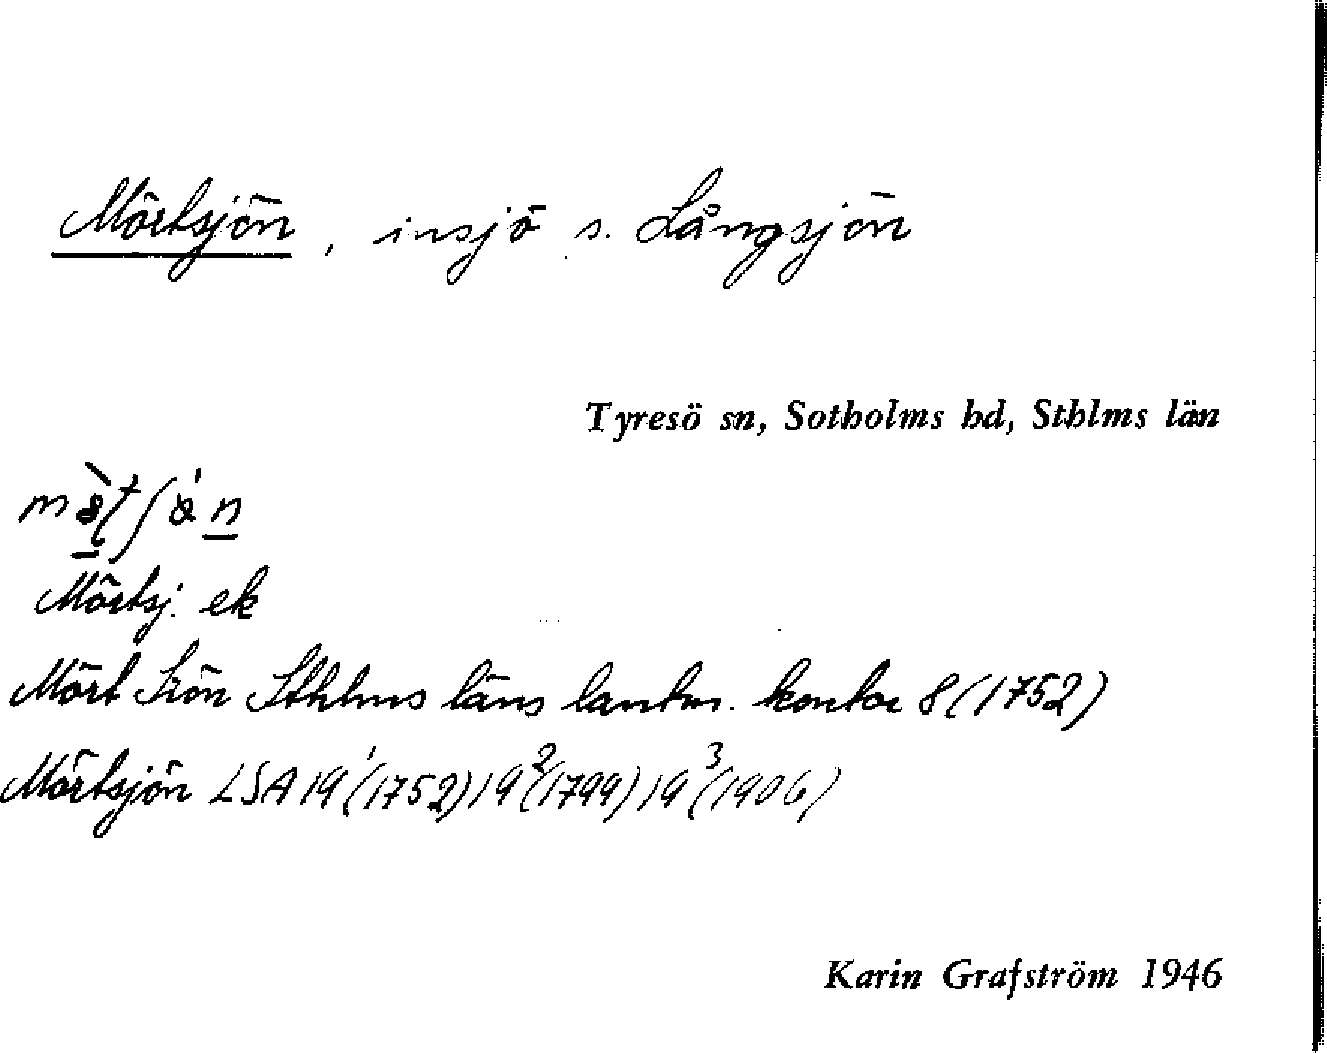 Mörtsjön, insjö s. Långsjön
Tyresö sn, Sotholms hd, Sthlms län
Mörtsj. ek
Mört Siön Sthlms läns lantm. kontor 8 (1752)
Mörtsjön LSA 19¹ (1752) 19² (1799) 19³ (1906)
Karin Grafström 1946